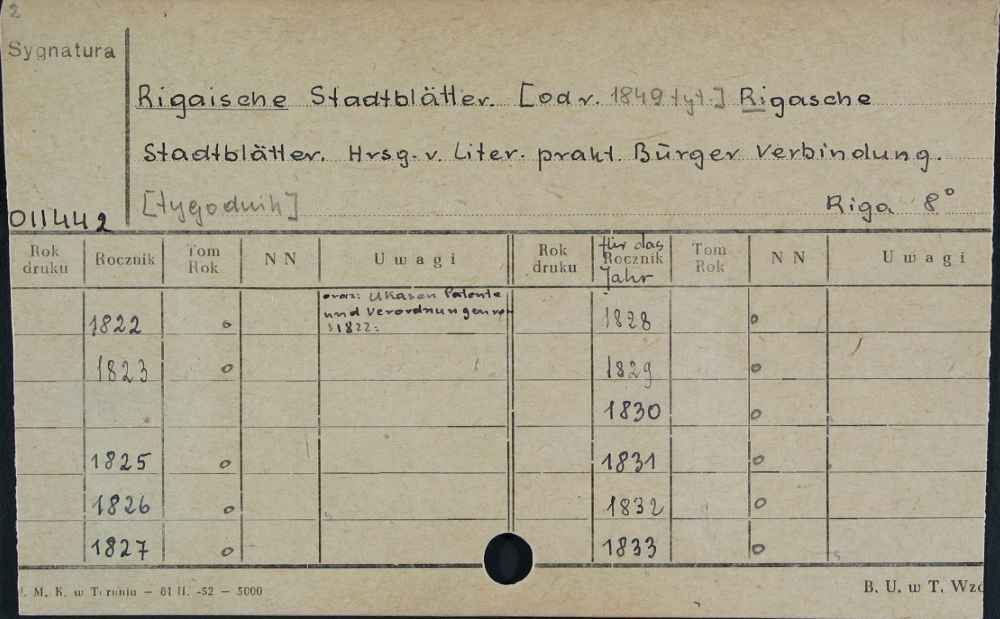 2
Sygnatura
Rigaische Stadtblätter. [od r. 1849 tyt.] Rigasche
Stadtblätter. Hrsg. v. Liter. prakt. Bürger Verbindung.
[tygodnik] Riga 8°
011442
Rok druku Rocznik Tom Rok NN Uwagi Rok druku für das Rocznik Jahr Tom Rok NN Uwagi
1822 o oraz: Ukasen Patente und Verordnungen 1822: 1828 o
1823 o 1829 o
1830 o
1825 o 1831 o
1826 o 1832 o
1827 o 1833 o
M. K. w Toruniu — 61 II. -52 — 5000 B. U. w T.